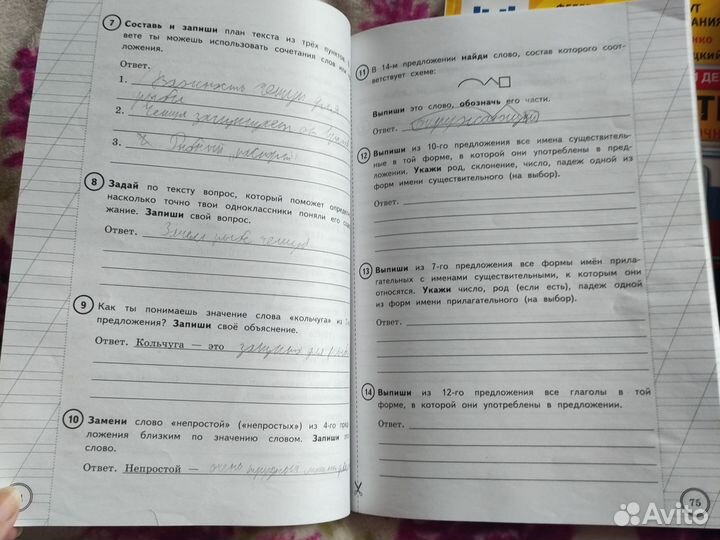 7 Составь и запиши план текста из трёх пунктов.
вете ты можешь использовать сочетания слов или
ложения.
Ответ.
1. Важность чешуи для
рыбы
2. Чешуя защищает от
3.
8 Задай по тексту вопрос, который поможет опреде
насколько точно твои одноклассники поняли его соде
жание. Запиши свой вопрос.
Ответ. Зачем рыбе чешуя
9 Как ты понимаешь значение слова «кольчуга» из
предложения? Запиши своё объяснение.
Ответ. Кольчуга — это
10 Замени слово «непростой» («непростых») из 4-го пред
ложения близким по значению словом. Запиши это
слово.
Ответ. Непростой — очень
11 В 14-м предложении найди слово, состав которого соот-
ветствует схеме:
Выпиши это слово, обозначь его части.
Ответ.
12 Выпиши из 10-го предложения все имена существитель-
ные в той форме, в которой они употреблены в пред-
ложении. Укажи род, склонение, число, падеж одной из
форм имени существительного (на выбор).
Ответ.
13 Выпиши из 7-го предложения все формы имён прилага-
тельных с именами существительными, к которым они
относятся. Укажи число, род (если есть), падеж одной
из форм имени прилагательного (на выбор).
Ответ.
14 Выпиши из 12-го предложения все глаголы в той
форме, в которой они употреблены в предложении.
Ответ.
75
Avito